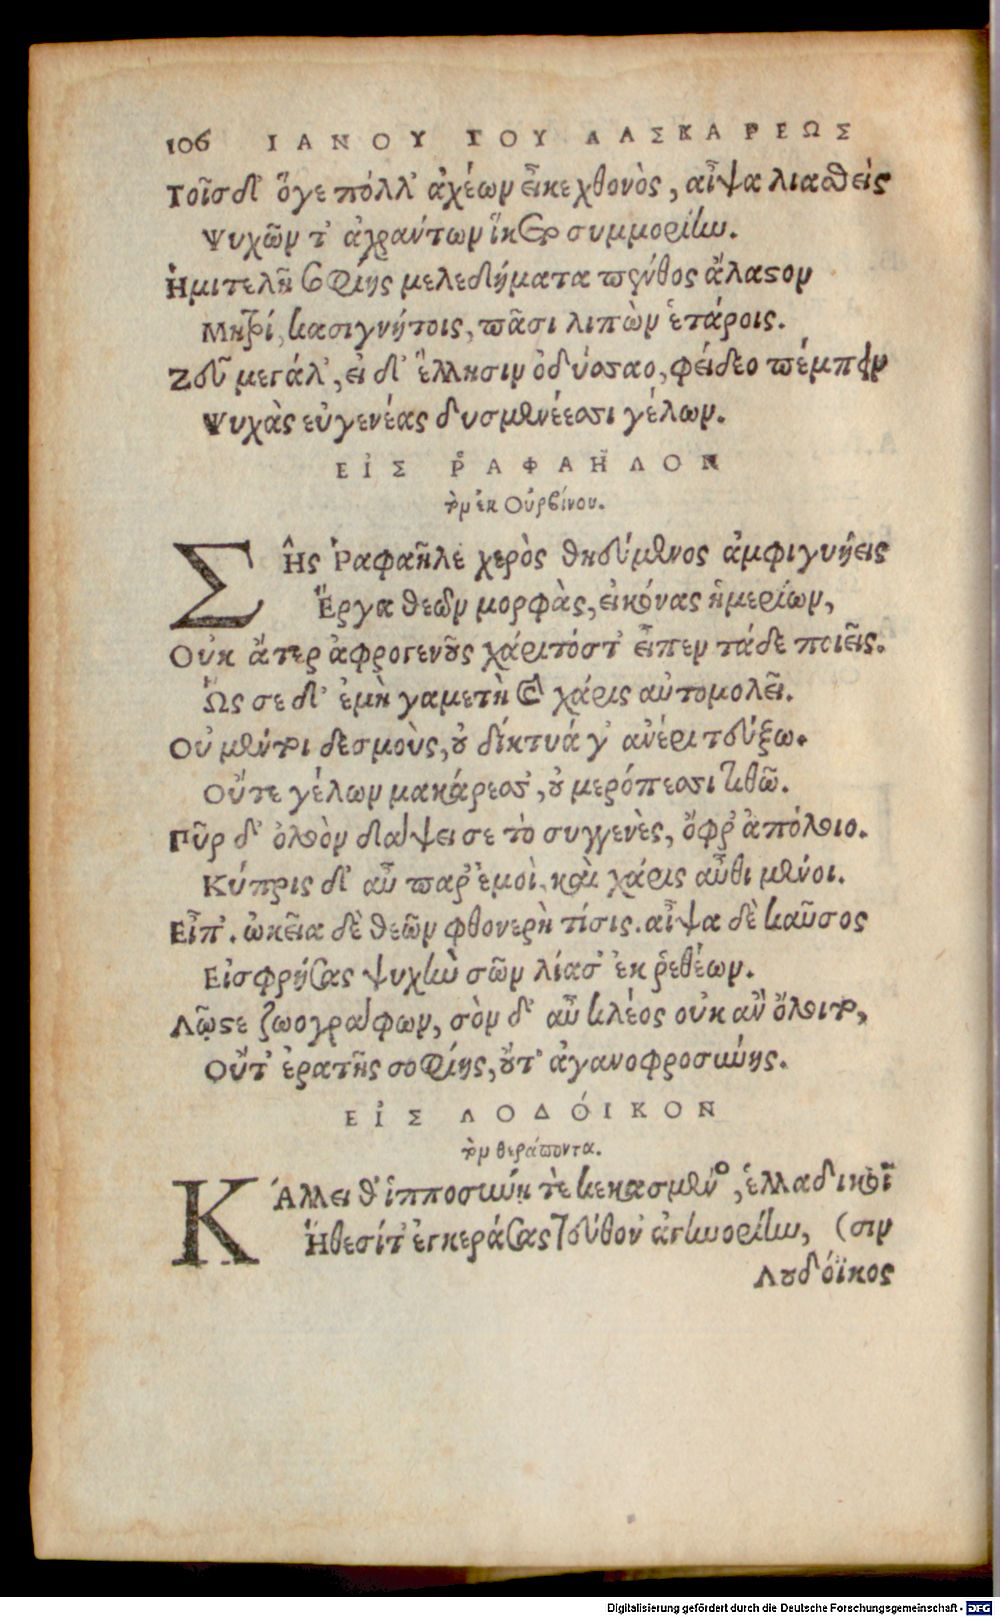 106 ΙΑΝΟΥ ΤΟΥ ΛΑΣΚΑΡΕΩΣ
Τοῖσδ' ὅγε πόλλ' ἀχέων εἶκε χθονὸς, αἶψα λιασθεὶς
Ψυχῶν τ' ἀχράντων ἵκετο συμμορίην.
Ἡμιτελῆ σοφίης μελεδήματα πένθος ἄλαστον
Μητρί, κασιγνήτοις, πᾶσι λιπὼν ἑτάροις.
Ζεῦ μεγάλ', εἰ δ' ἕλλησιν ὀδύσσαο, φείδεο πέμπειν
Ψυχὰς εὐγενέας δυσμενέεσσι γέλων.
ΕἸΣ ῬΑΦΑΗ͂ΛΟΝ
τὸν ἐκ Οὐρβίνου.
Σῆς Ῥαφαῆλε χερὸς θηεύμενος ἀμφιγυήεις
Ἔργα θεῶν μορφὰς, εἰκόνας ἡμερίων,
Οὐκ ἄτερ ἀφρογενοῦς χάριτόστ' εἶπεν τάδε ποιεῖς.
Ὥς σε δ' ἐμὴ γαμετὴ καὶ χάρις αὐτομολεῖ.
Οὐ μέντοι δεσμοὺς, οὐ δίκτυά γ' ἀνέρι τεύξω.
Οὔτε γέλων μακάρεσσ', οὐ μερόπεσσι τεθῶ.
Πῦρ δ' ὀλοὸν διαψεισε τὸ συγγενὲς, ὄφρ' ἀπόλοιο.
Κύπρις δ' αὖ παρ' ἐμοὶ, καὶ χάρις αὖθι μένοι.
Εἶπ'. ὠκεῖα δὲ θεῶν φθονερὴ τίσις. αἶψα δὲ καῦσος
Εἰσφρήσας ψυχὴν σῶν λίασ' ἐκ ῥεθέων.
Λῷστε ζωογράφων, σὸν δ' αὖ κλέος οὐκ ἂν ὄλοιτο,
Οὔτ' ἐρατῆς σοφίης, οὔτ' ἀγανοφροσύνης.
ΕἸΣ ΛΟΔΌΙΚΟΝ
τὸν θεράποντα.
Κάλλει θ' ἱπποσύνῃ τε κεκασμένος, ἑλλαδικοῖ
Ἤθεσίτ' ἐγκεράσας τεύθον' ἀγηνορίην, (σιν
Λυδόϊκος
Digitalisierung gefördert durch die Deutsche Forschungsgemeinschaft - DFG